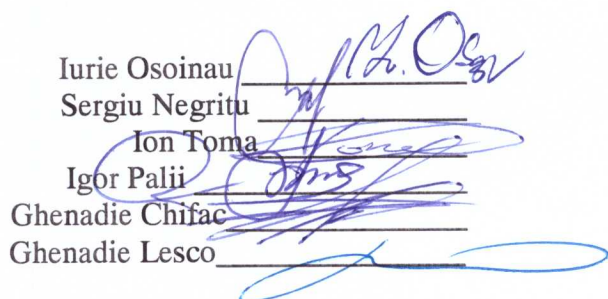 Iurie Osoinau
Sergiu Negritu
Ion Toma
Igor Palii
Ghenadie Chifac
Ghenadie Lesco